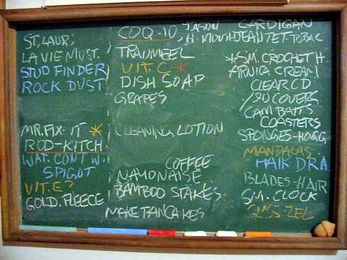 ST. LAUR.
LA VIE MUST.
STUD FINDER
ROCK DUST
MR. FIX. IT *
ROD-KITCH.
WAT. CONT W.
SPIGOT
VIT. E?
GOLD. FLEECE
COQ-10
TRAUMEEL
VIT. C *
DISH SOAP
GRAPES
CLEANING LOTION
COFFEE
NAYONAISE
BAMBOO STAKES
MAKE PANCAKES
JASON
CARDIGAN
*SM. CROCHET H.
ARNICA CREAM
CLEAR CD
/SU COVERS
CAM BATTS
COASTERS
SPONGES-HOGG
MANDALAS
HAIR DRA.
BLADES-HAIR
SM. CLOCK